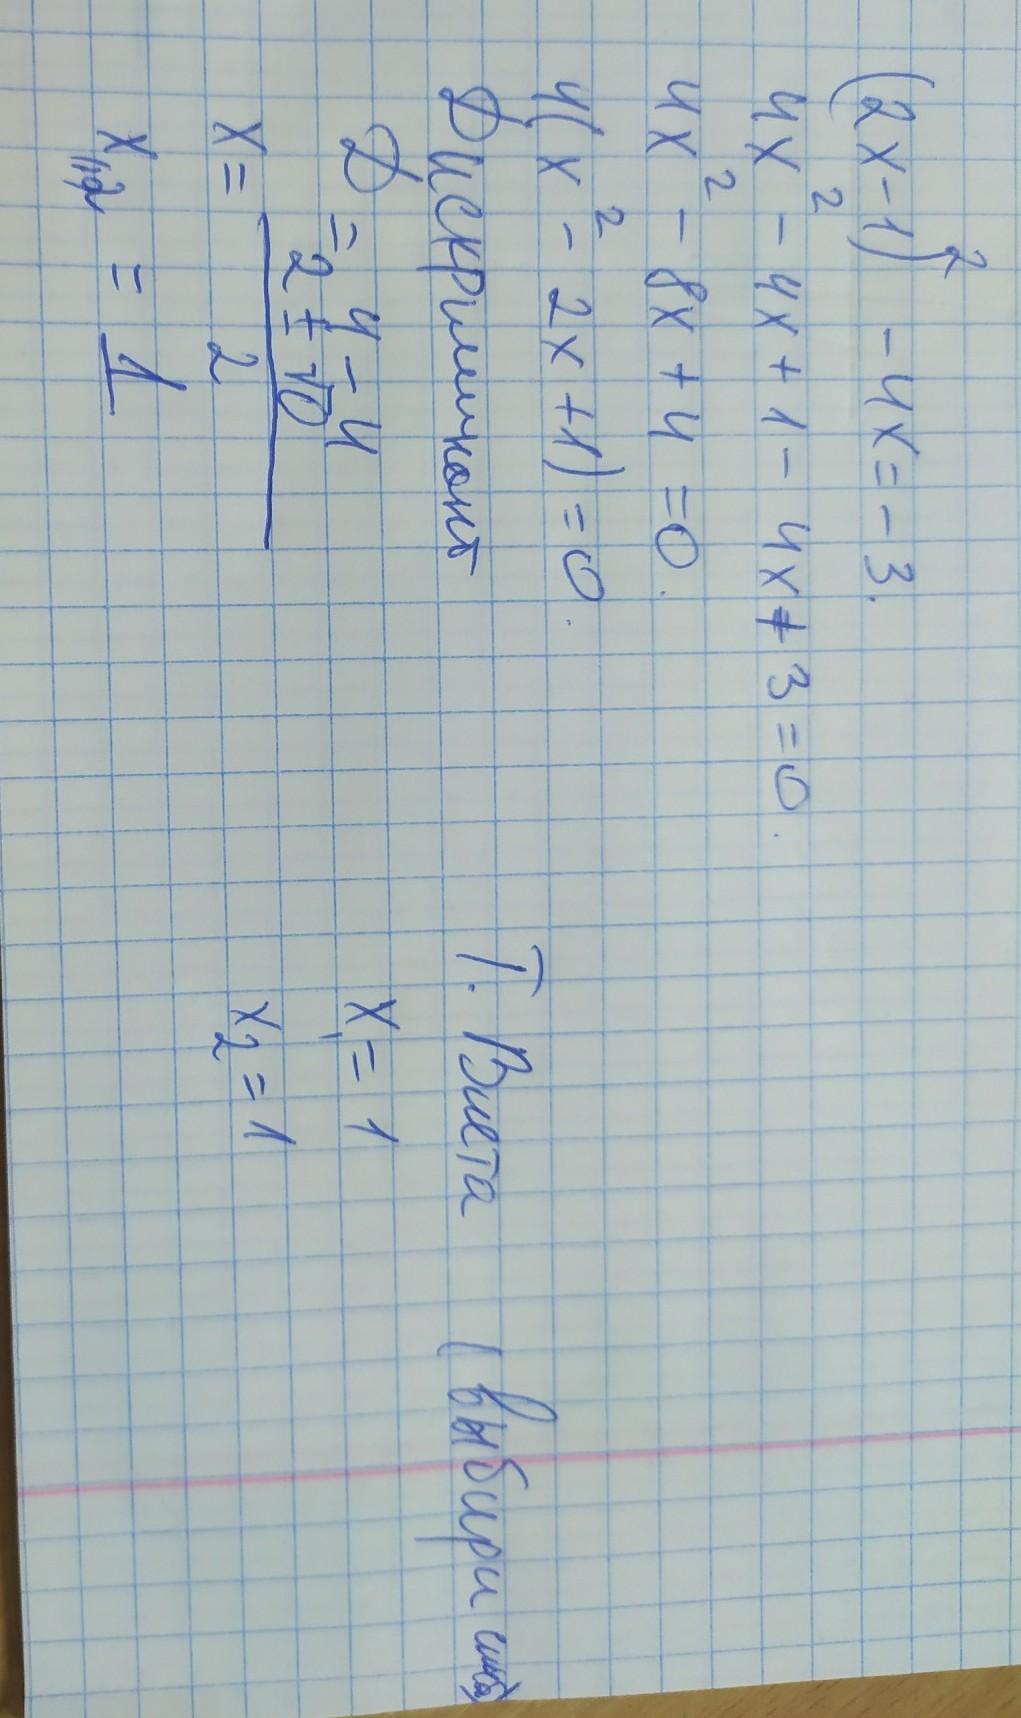 (2x-1)² - 4x = -3.
4x² - 4x + 1 - 4x + 3 = 0.
4x² - 8x + 4 = 0.
4(x² - 2x + 1) = 0.
Дискриминант
D = 4 - 4
x = (2 ± √0) / 2
x₁,₂ = 1
Т. Виета (выбери
x₁ = 1
x₂ = 1